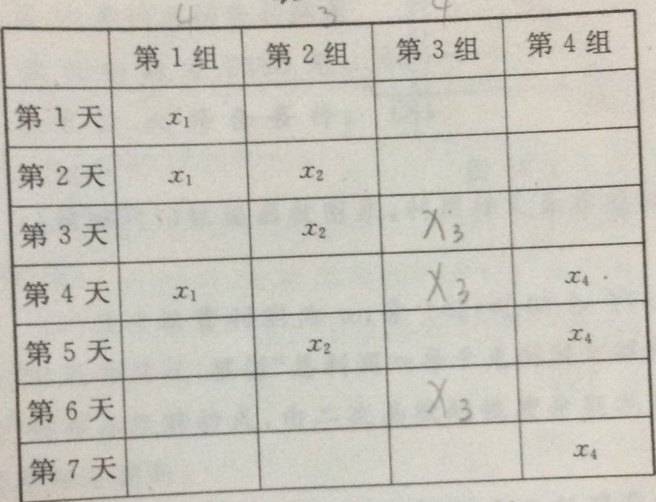 4 3 4
第1组 第2组 第3组 第4组
第1天 x₁
第2天 x₁ x₂
第3天 x₂ X₃
第4天 x₁ X₃ x₄
第5天 x₂ x₄
第6天 X₃
第7天 x₄